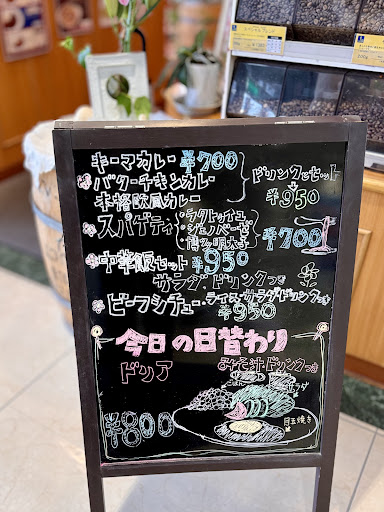 キーマカレー ¥700
バターチキンカレー
本格欧風カレー
ドリンクセット
¥950
スパゲティ
・ラタトゥイユ
・ジェノベーゼ
・博多明太子
¥700
中華飯セット ¥950
サラダ・ドリンクつき
ビーフシチュー・ライス・サラダ・ドリンクつき
¥950
今日の日替わり
ドリア
みそ汁・ドリンクつき
ごはん
サラダ
目玉焼き
¥800